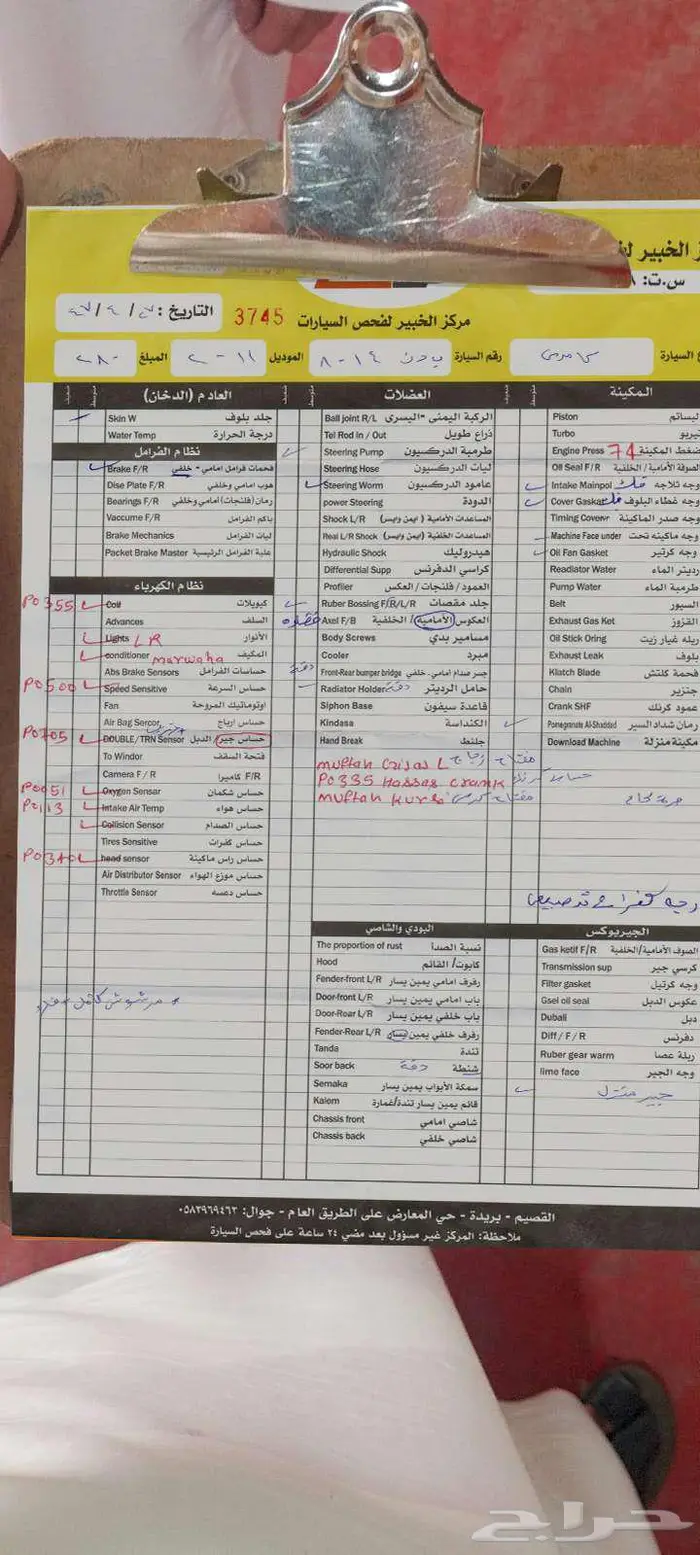 ز الخبير لف
س.ت:
مركز الخبير لفحص السيارات 3745 التاريخ:
ع السيارة
رقم السيارة
الموديل ٢٠١١
المبلغ ٢٨٠
المكينة
Piston بساتم
Turbo تيربو
Engine Press 74 ضغط المكينة
Oil Seal F/R الصوفة الأمامية / الخلفية
Intake Mainpol وجه ثلاجه فك
Cover Gasket وجه غطاء البلوف فك
Timing Coverr وجه صدر الماكينة
Machine Face under وجه ماكينه تحت
Oil Fan Gasket وجه كرتير
Readiator Water رديتر الماء
Pump Water طرمبة الماء
Belt السيور
Exhaust Gas Ket القزوز
Oil Stick Oring ربله غيار زيت
Exhaust Leak بلوف
Klatch Blade فحمة كلتش
Chain جنزير
Crank SHF عمود كرنك
Pomegranate Al-Shaddad رمان شداد السير
Download Machine مكينة منزلة
العضلات
Ball joint R/L الركبة اليمنى - اليسرى
Tel Rod In / Out ذراع طويل
Steering Pump طرمبة الدركسيون
Steering Hose ليات الدركسيون
Steering Worm عامود الدركسيون
power Steering الدودة
Shock L/R المساعدات الأمامية ( ايمن وايسر )
Real L/R Shock المساعدات الخلفية ( ايمن وايسر )
Hydraulic Shock هيدروليك
Differential Supp كراسي الدفرنس
Profiler العمود / فلنجات / العكس
Ruber Bossing F/R/L/R جلد مقصات
Axel F/B العكوس الأمامية / الخلفية
Body Screws مسامير بدي
Cooler مبرد
Front-Rear bumper bridge جسر صدام أمامي. خلفي دقة
Radiator Holder حامل الرديتر دقة
Siphon Base قاعدة سيفون
Kindasa الكنداسة
Hand Break جلنط
muftah Crijas L مفتاح زجاج
P0335 Hassas crank حساس كرنك
muftah kurse مفتاح كرسي
العادم (الدخان)
Skin W جلد بلوف
Water Temp درجة الحرارة
نظام الفرامل
Brake F/R فحمات فرامل امامي - خلفي
Dise Plate F/R هوب امامي وخلفي
Bearings F/R رمان (فلنجات) امامي وخلفي
Vaccume F/R باكم الفرامل
Brake Mechanics ليات الفرامل
Packet Brake Master علبة الفرامل الرئيسية
نظام الكهرباء
P0355 Coil كويلات
Advances السلف
Lights LR الأنوار
conditioner marwaha المكيف
Abs Brake Sensors حساسات الفرامل
P0500 Speed Sensitive حساس السرعة
Fan اوتوماتيك المروحة
Air Bag Sercor حساس ارباج
P0705 DOUBLE/TRN Sensor حساس جير / الدبل
To Windor فتحة السقف
Camera F / R كاميرا F/R
P0051 Oxygen Sensar حساس شكمان
P2113 Intake Air Temp حساس هواء
Collision Sensor حساس الصدام
Tires Sensitive حساس كفرات
P0340 head sensor حساس راس ماكينة
Air Distributor Sensor حساس موزع الهواء
Throttle Sensor حساس دعسه
البودي والشاصي
The proportion of rust نسبة الصدأ
Hood كابوت/ القائم
Fender-front L/R رفرف امامي يمين يسار
Door-front L/R باب امامي يمين يسار
Door-Rear L/R باب خلفي يمين يسار
Fender-Rear L/R رفرف خلفي يمين يسار
Tanda تندة
Soor back شنطة دقة
Semaka سمكة الأبواب يمين يسار
Kalem قائم يمين يسار تندة/غمارة
Chassis front شاصي امامي
Chassis back شاصي خلفي
الجيربوكس
Gas ketif F/R الصوف الأمامية/الخلفية
Transmission sup كرسي جير
Filter gasket وجه كرتيل
Gsel oil seal عكوس الدبل
Dubali دبل
Diff / F / R دفرنس
Ruber gear warm ربلة عصا
lime face وجه الجير
جير منزل
القصيم - بريدة - حي المعارض على الطريق العام - جوال: ٠٥٨٣٩٦٩٤٦٣
ملاحظة: المركز غير مسؤول بعد مضي ٢٤ ساعة على فحص السيارة
حراج